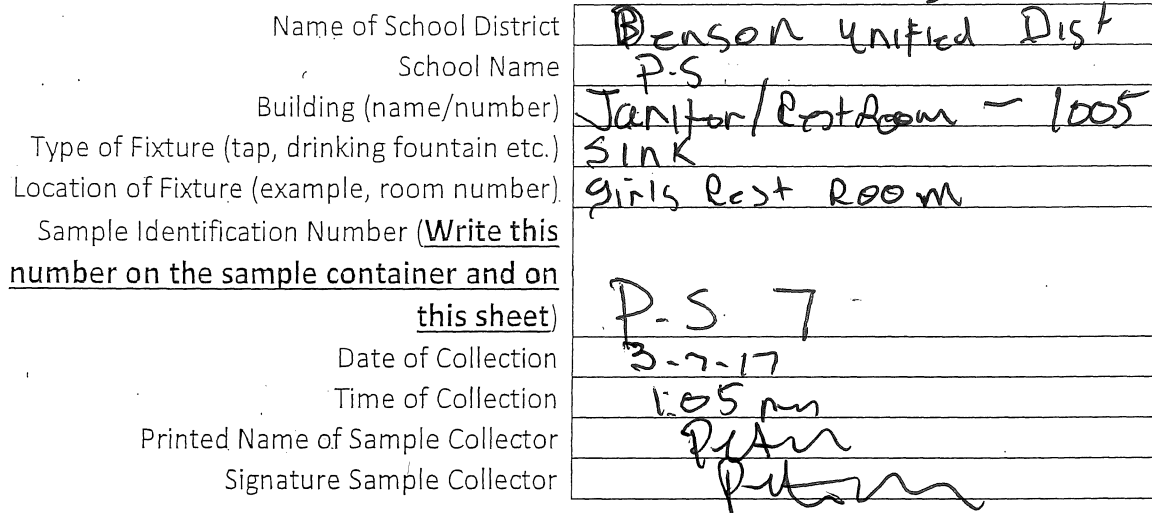 Name of School District Benson Unified Dist
School Name P-S
Building (name/number) Janitor/RestRoom - 1005
Type of Fixture (tap, drinking fountain etc.) Sink
Location of Fixture (example, room number) Girls Rest Room
Sample Identification Number (Write this
number on the sample container and on
this sheet) P-S 7
Date of Collection 3-7-17
Time of Collection 1:05 pm
Printed Name of Sample Collector
Signature Sample Collector